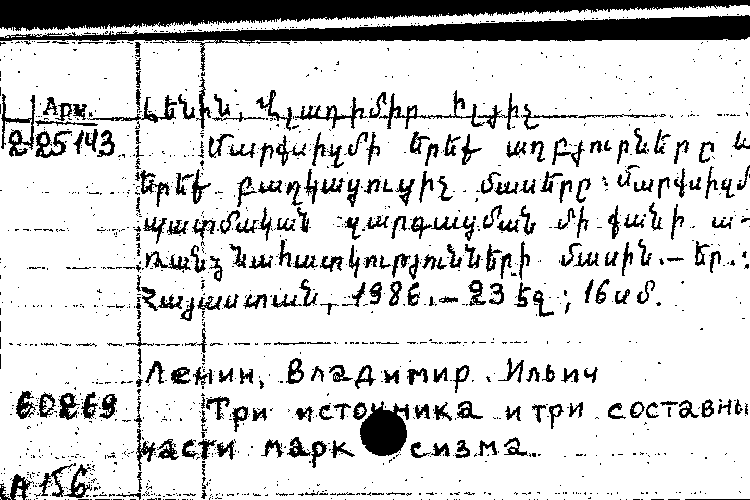 Арм.
2-25143
Լենին, Վլադիմիր Իլյիչ
Մարքսիզմի երեք աղբյուրները և
երեք բաղկացուցիչ մասերը: Մարքսիզմ
պատմական զարգացման մի քանի ա-
ռանձնահատկությունների մասին.— Եր.:
Հայաստան, 1986.— 23 էջ; 16 սմ.
Ленин, Владимир Ильич
60269
Три источника и три составны
части марксизма.
А 156